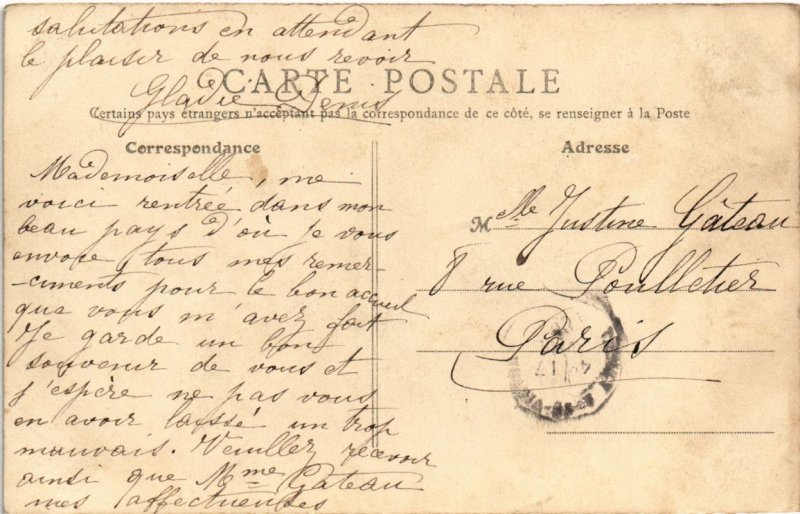 salutations en attendant
le plaisir de nous revoir
Denis
CARTE POSTALE
Certains pays étrangers n'acceptant pas la correspondance de ce côté, se renseigner à la Poste
Correspondance
Mademoiselle, me
voici rentrée dans mon
beau pays d'où je vous
envoie tous mes remer-
ciments pour le bon accueil
que vous m'avez fait
Je garde un bon
souvenir de vous et
j'espère ne pas vous
en avoir laissé un trop
mauvais. Veuillez recevoir
ainsi que Mme Gateau
mes affectueuses
Adresse
Mlle Justine Gâteau
8 rue Poulletier
Paris